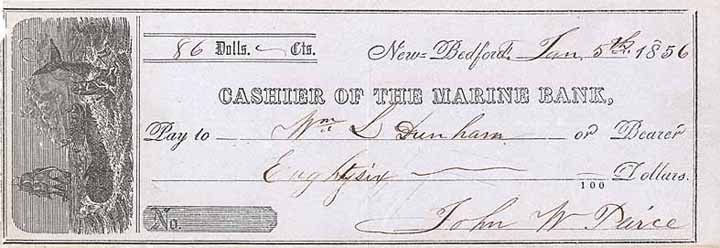 86 Dolls. Cts. New-Bedford. Jan. 5th 1856
CASHIER OF THE MARINE BANK,
Pay to Wm L Dunham or Bearer
Eightysix /100 Dollars.
No. John W Peirce